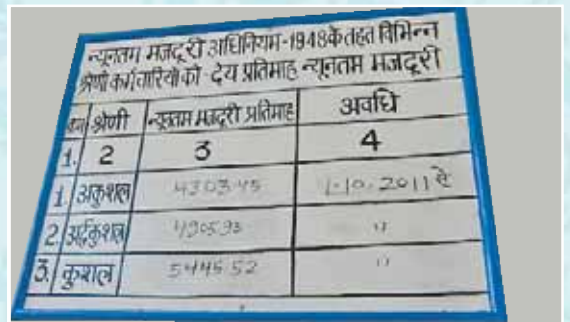 न्यूनतम मजदूरी अधिनियम-1948 के तहत विभिन्न
श्रेणी कर्मचारियों को देय प्रतिमाह न्यूनतम मजदूरी
श्रेणी न्यूनतम मजदूरी प्रतिमाह अवधि
1. 2 3 4
1. अकुशल 4303.45 1.10.2011 से
2. अर्द्धकुशल 4905.93 "
3. कुशल 5445.52 "